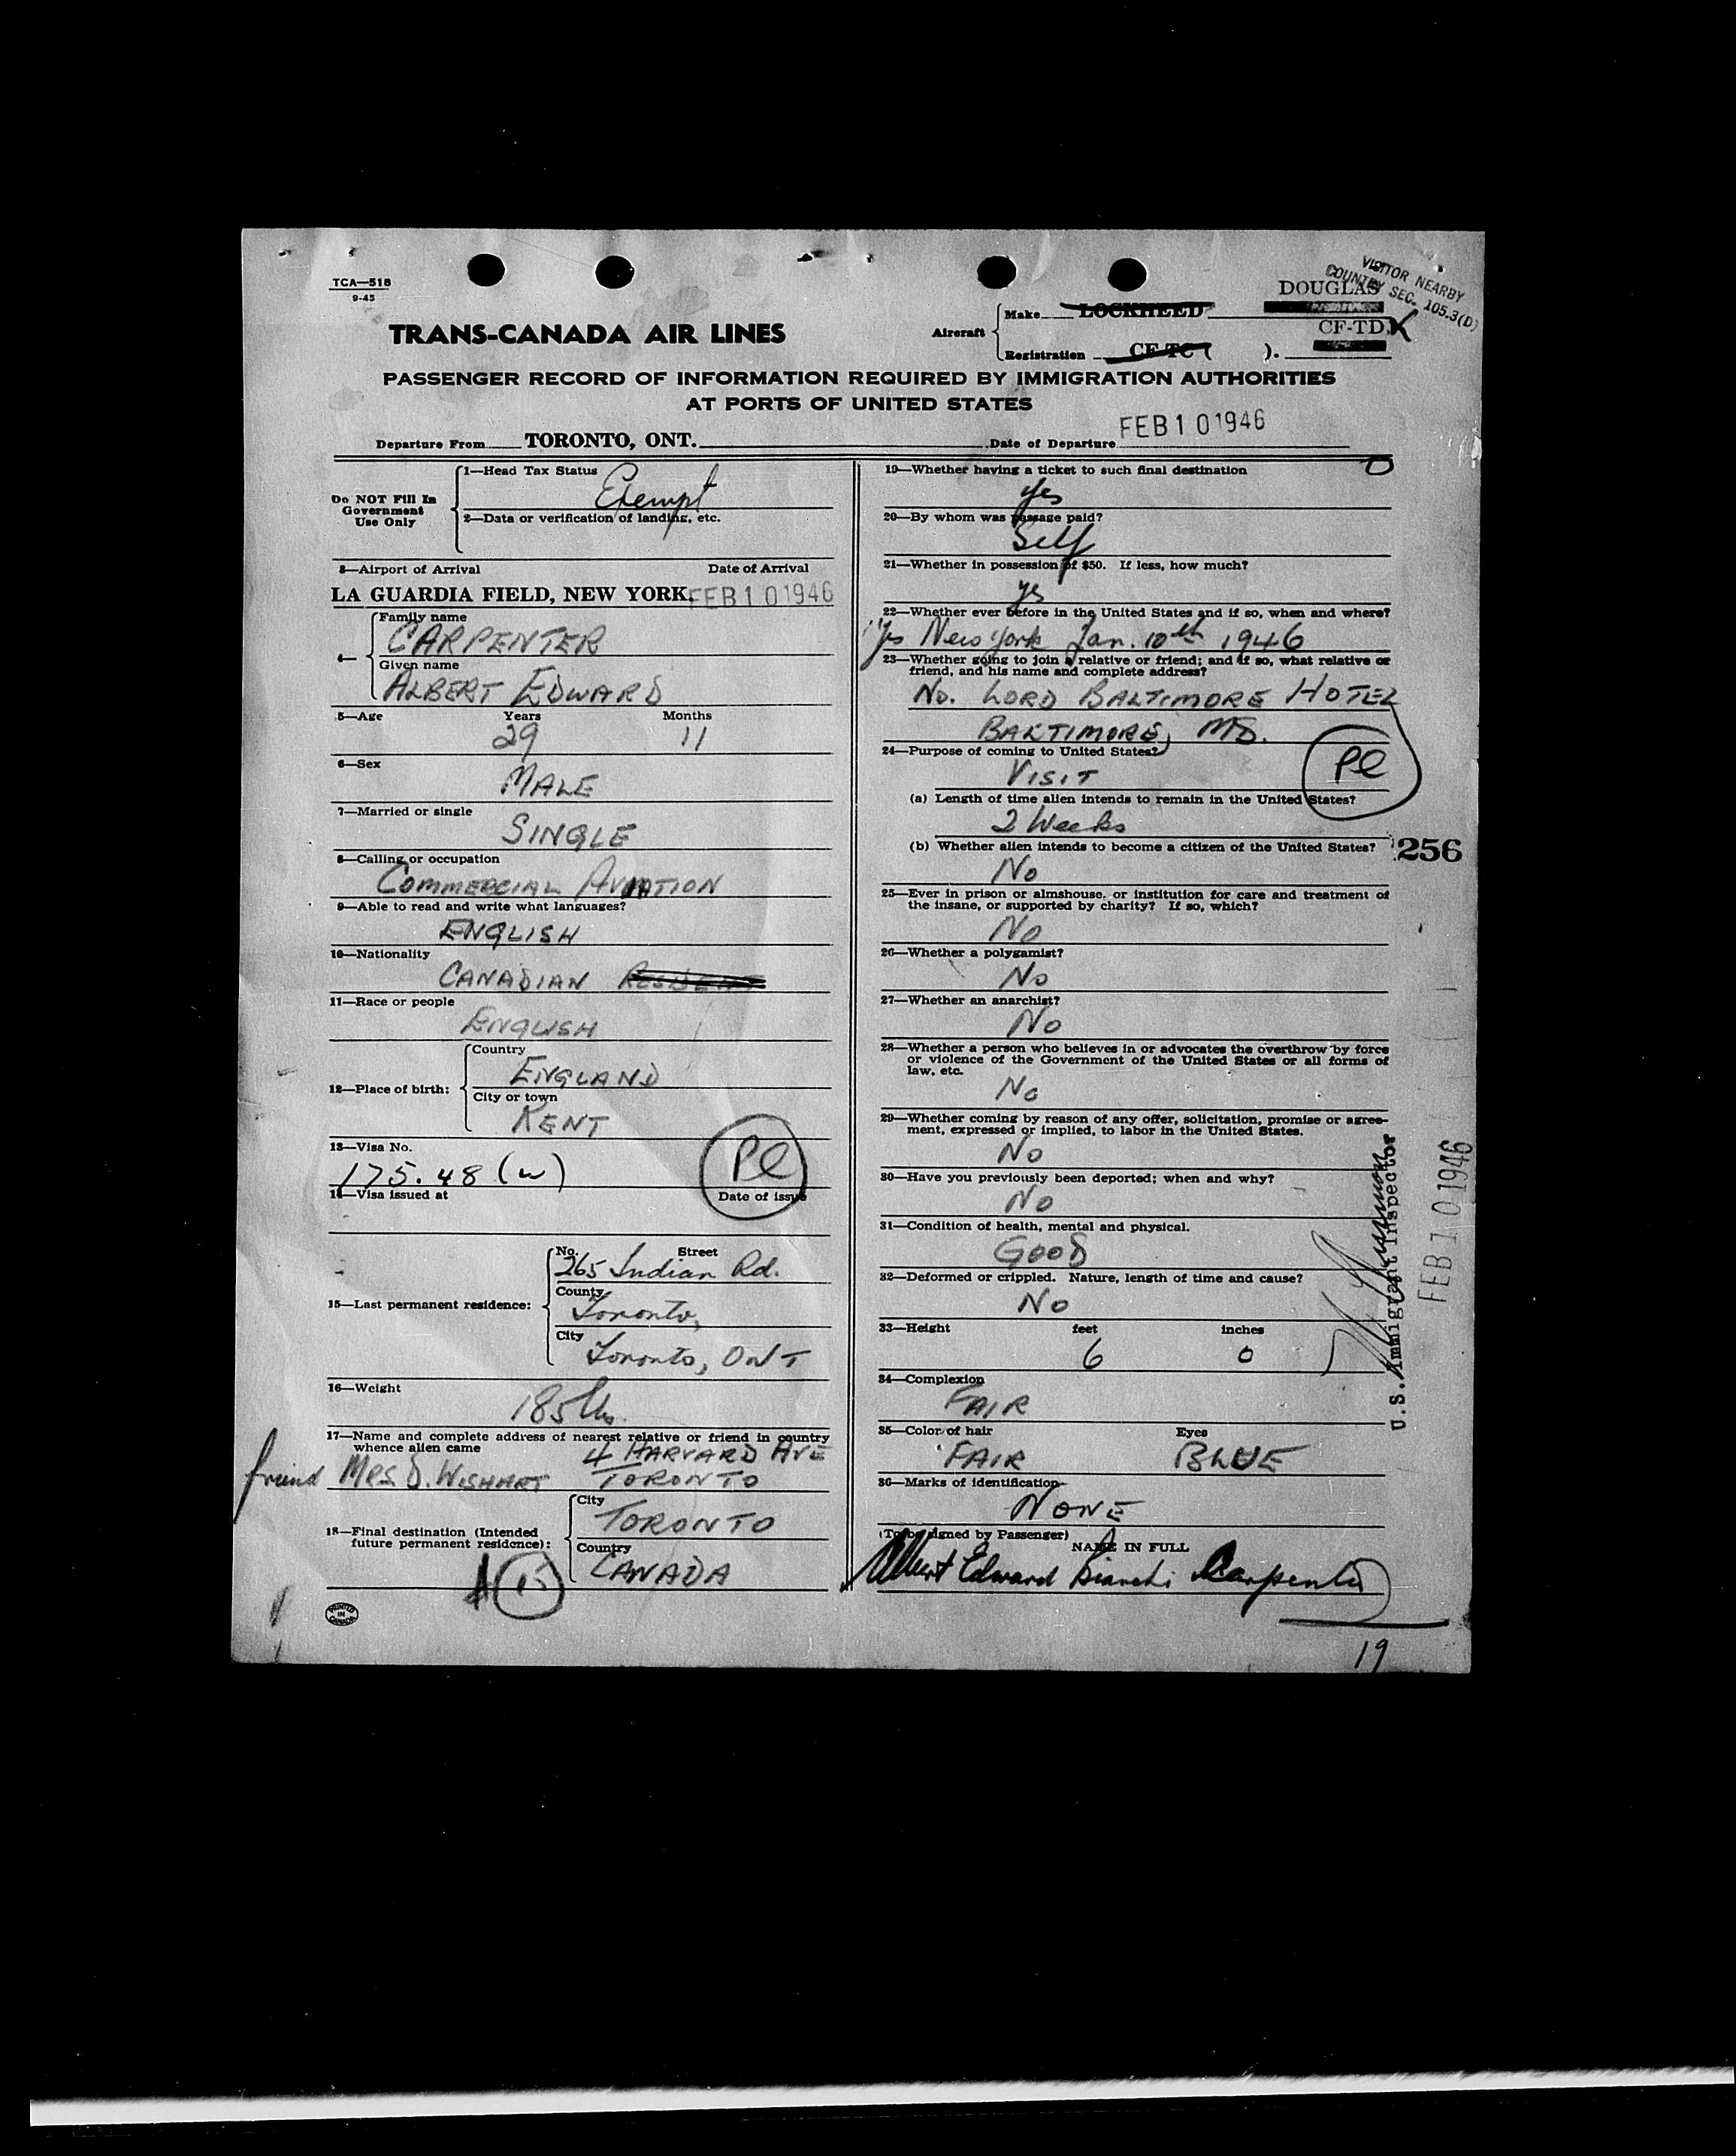 TCA—518
9-45
VISITOR NEARBY
COUNTRY SEC. 105.3(D)
TRANS-CANADA AIR LINES
Aircraft
Make LOCKHEED
DOUGLAS
Registration CF-TC ( ).
CF-TD K
PASSENGER RECORD OF INFORMATION REQUIRED BY IMMIGRATION AUTHORITIES
AT PORTS OF UNITED STATES
Departure From TORONTO, ONT. Date of Departure FEB 10 1946
Do NOT Fill In
Government
Use Only
1—Head Tax Status
Exempt
2—Data or verification of landing, etc.
3—Airport of Arrival Date of Arrival
LA GUARDIA FIELD, NEW YORK. FEB 10 1946
4—
Family name
CARPENTER
Given name
ALBERT EDWARD
5—Age Years Months
29 11
6—Sex
MALE
7—Married or single
SINGLE
8—Calling or occupation
COMMERCIAL AVIATION
9—Able to read and write what languages?
ENGLISH
10—Nationality
CANADIAN RESIDENT
11—Race or people
ENGLISH
12—Place of birth:
Country
ENGLAND
City or town
KENT
13—Visa No.
175.48 (w)
Pl
14—Visa issued at Date of issue
15—Last permanent residence:
No. Street
265 Indian Rd.
County
Toronto,
City
Toronto, ONT
16—Weight
185 lbs.
17—Name and complete address of nearest relative or friend in country
whence alien came
4 HARVARD AVE
friend MRS D. WISHART TORONTO
18—Final destination (Intended
future permanent residence):
City
TORONTO
Country
CANADA
15
PRINTED
IN
CANADA
19—Whether having a ticket to such final destination
yes
20—By whom was passage paid?
Self
21—Whether in possession of $50. If less, how much?
yes
22—Whether ever before in the United States and if so, when and where?
Yes New York Jan. 10th 1946
23—Whether going to join a relative or friend; and if so, what relative or
friend, and his name and complete address?
No. LORD BALTIMORE HOTEL
BALTIMORE, MD.
24—Purpose of coming to United States?
VISIT
Pl
(a) Length of time alien intends to remain in the United States?
2 Weeks
(b) Whether alien intends to become a citizen of the United States?
256
No
25—Ever in prison or almshouse, or institution for care and treatment of
the insane, or supported by charity? If so, which?
No
26—Whether a polygamist?
No
27—Whether an anarchist?
No
28—Whether a person who believes in or advocates the overthrow by force
or violence of the Government of the United States or all forms of
law, etc.
No
29—Whether coming by reason of any offer, solicitation, promise or agree-
ment, expressed or implied, to labor in the United States.
No
30—Have you previously been deported; when and why?
No
31—Condition of health, mental and physical.
GOOD
32—Deformed or crippled. Nature, length of time and cause?
No
33—Height feet inches
6 0
34—Complexion
FAIR
35—Color of hair Eyes
FAIR BLUE
36—Marks of identification
NONE
(To be signed by Passenger)
NAME IN FULL
Albert Edward Bianchi Carpenter
U.S. Immigrant Inspector
FEB 10 1946
19